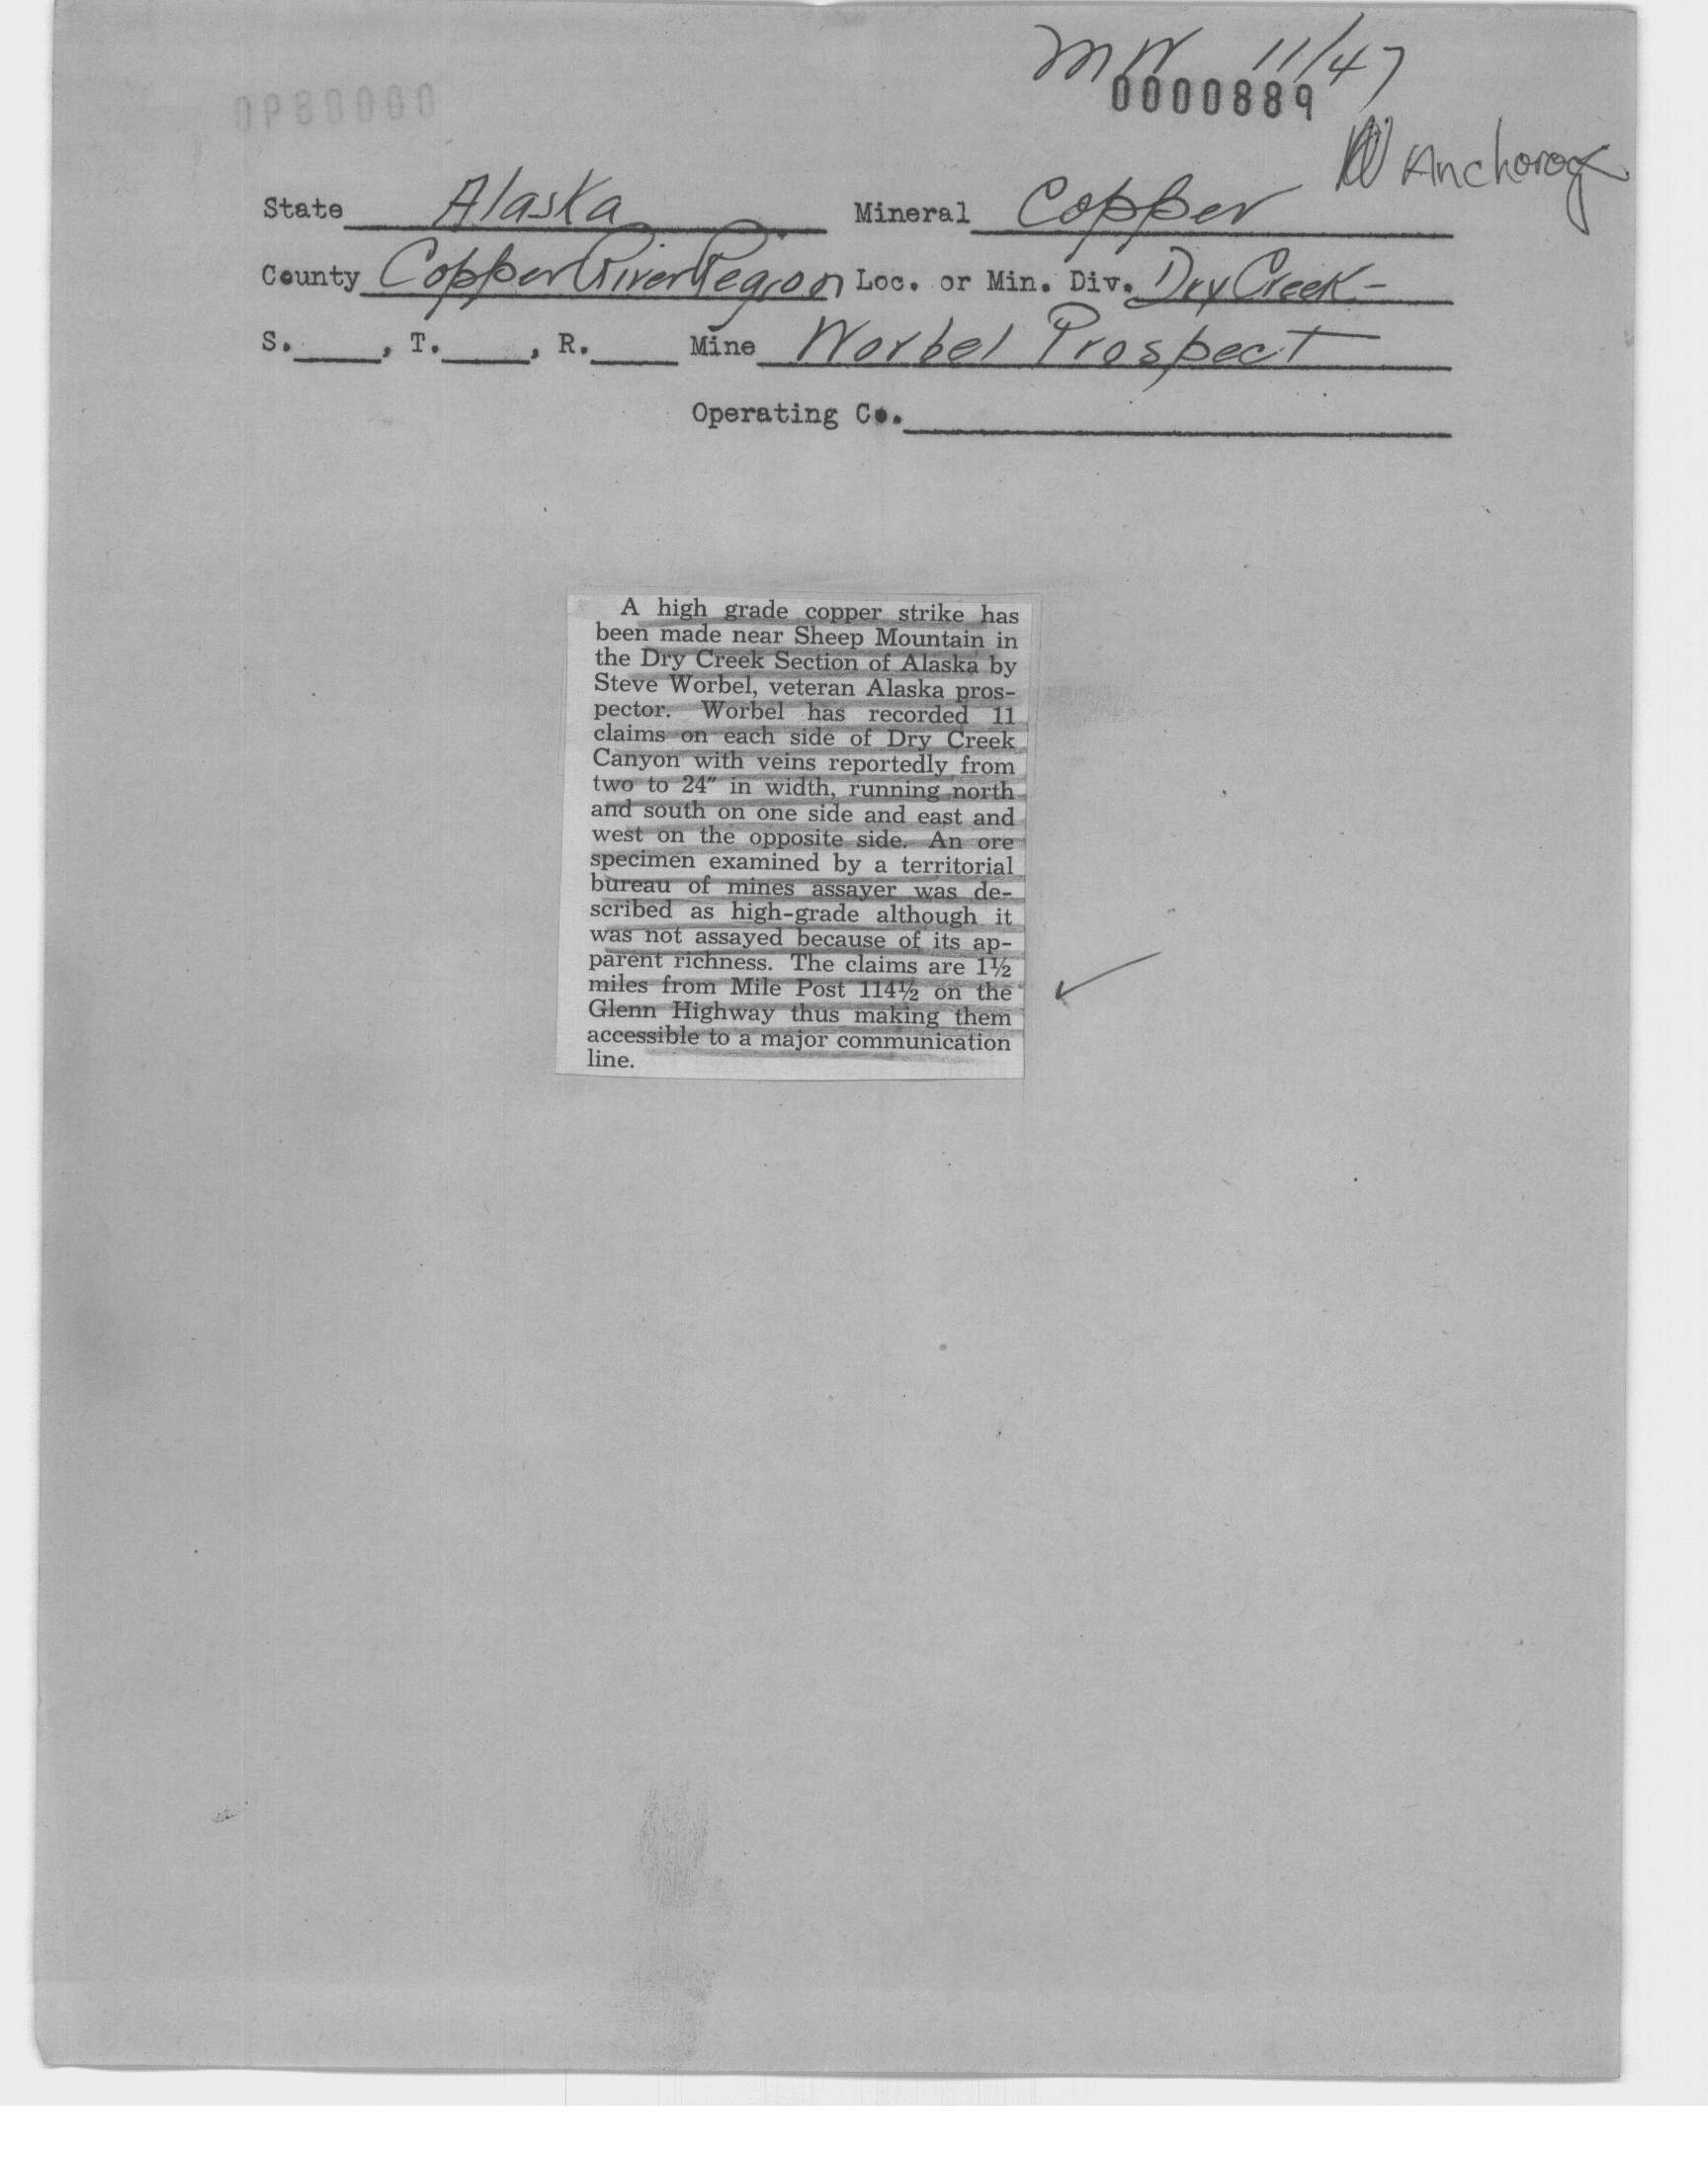 MW 11/47
0000889
Anchorage
State Alaska Mineral Copper
County Copper River Region Loc. or Min. Div. Dry Creek-
S.____, T.____, R.____ Mine Worbel Prospect
Operating Co.
A high grade copper strike has
been made near Sheep Mountain in
the Dry Creek Section of Alaska by
Steve Worbel, veteran Alaska pros-
pector. Worbel has recorded 11
claims on each side of Dry Creek
Canyon with veins reportedly from
two to 24″ in width, running north
and south on one side and east and
west on the opposite side. An ore
specimen examined by a territorial
bureau of mines assayer was de-
scribed as high-grade although it
was not assayed because of its ap-
parent richness. The claims are 1½
miles from Mile Post 114½ on the
Glenn Highway thus making them
accessible to a major communication
line.